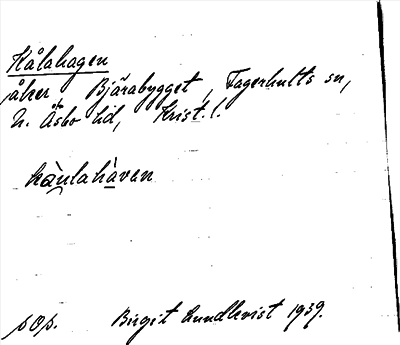 Kålahagen
åker Bjärabygget, Fagerhults sn,
N. Åsbo hd, Krist. l.
kàulahàvan
sOp. Birgit Lundkvist 1939.